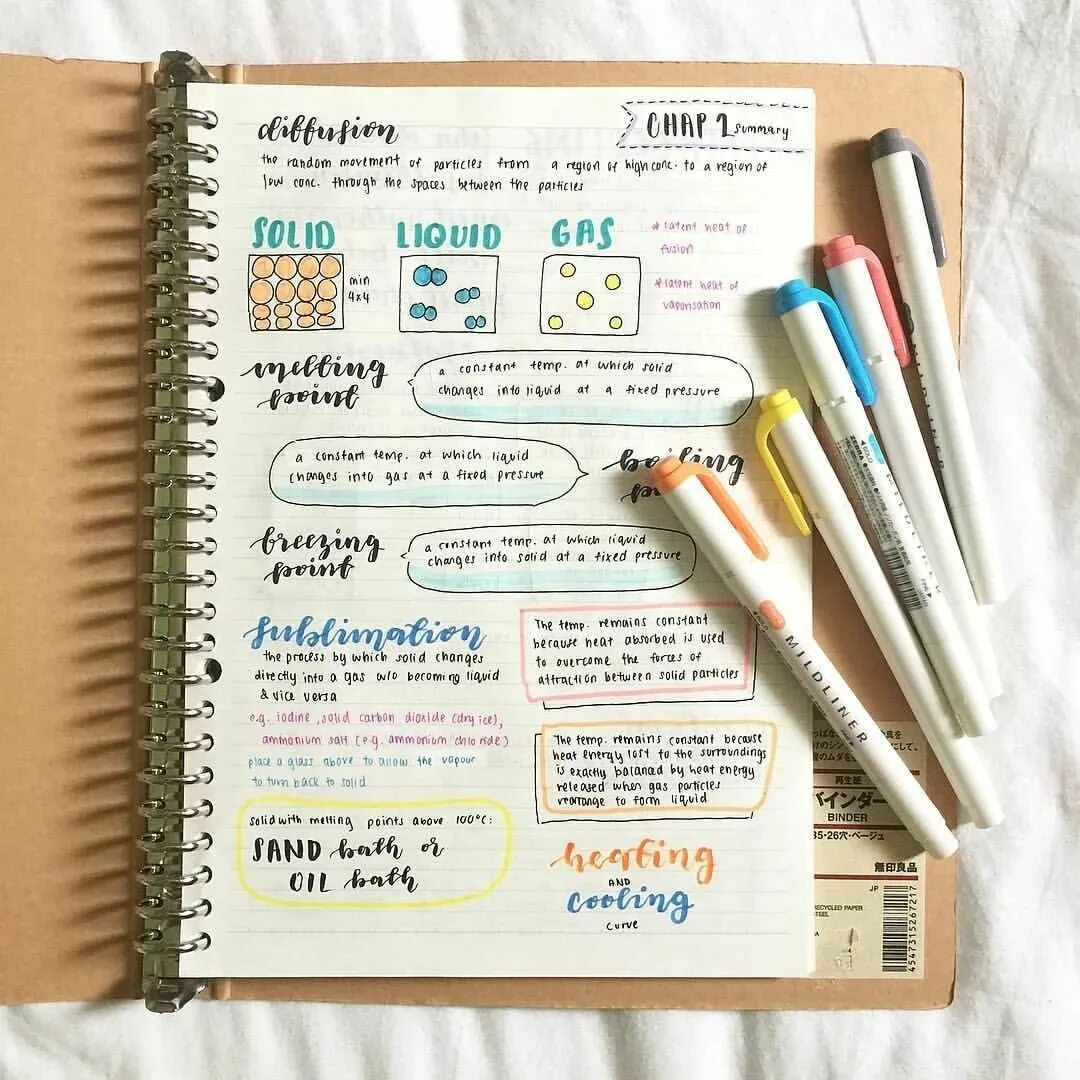 diffusion
CHAP 1 summary
the random movement of particles from a region of high conc. to a region of
low conc. through the spaces between the particles
SOLID
LIQUID
GAS
* latent heat of
fusion
* latent heat of
vaporisation
min
4x4
melting
point
a constant temp. at which solid
changes into liquid at a fixed pressure
a constant temp. at which liquid
changes into gas at a fixed pressure
boiling
freezing
point
a constant temp. at which liquid
changes into solid at a fixed pressure
sublimation
the process by which solid changes
directly into a gas w/o becoming liquid
& vice versa
e.g. iodine, solid carbon dioxide (dry ice),
ammonium salt (e.g. ammonium chloride)
place a glass above to allow the vapour
to turn back to solid
The temp. remains constant
because heat absorbed is used
to overcome the forces of
attraction between solid particles
The temp. remains constant because
heat energy lost to the surroundings
is exactly balanced by heat energy
released when gas particles
rearrange to form liquid
solid with melting points above 100°C:
SAND bath or
OIL bath
heating
AND
cooling
curve
MILDLINER
再生紙
バインダー
BINDER
B5・26穴・ベージュ
無印良品
JP
RECYCLED PAPER
4547315267217